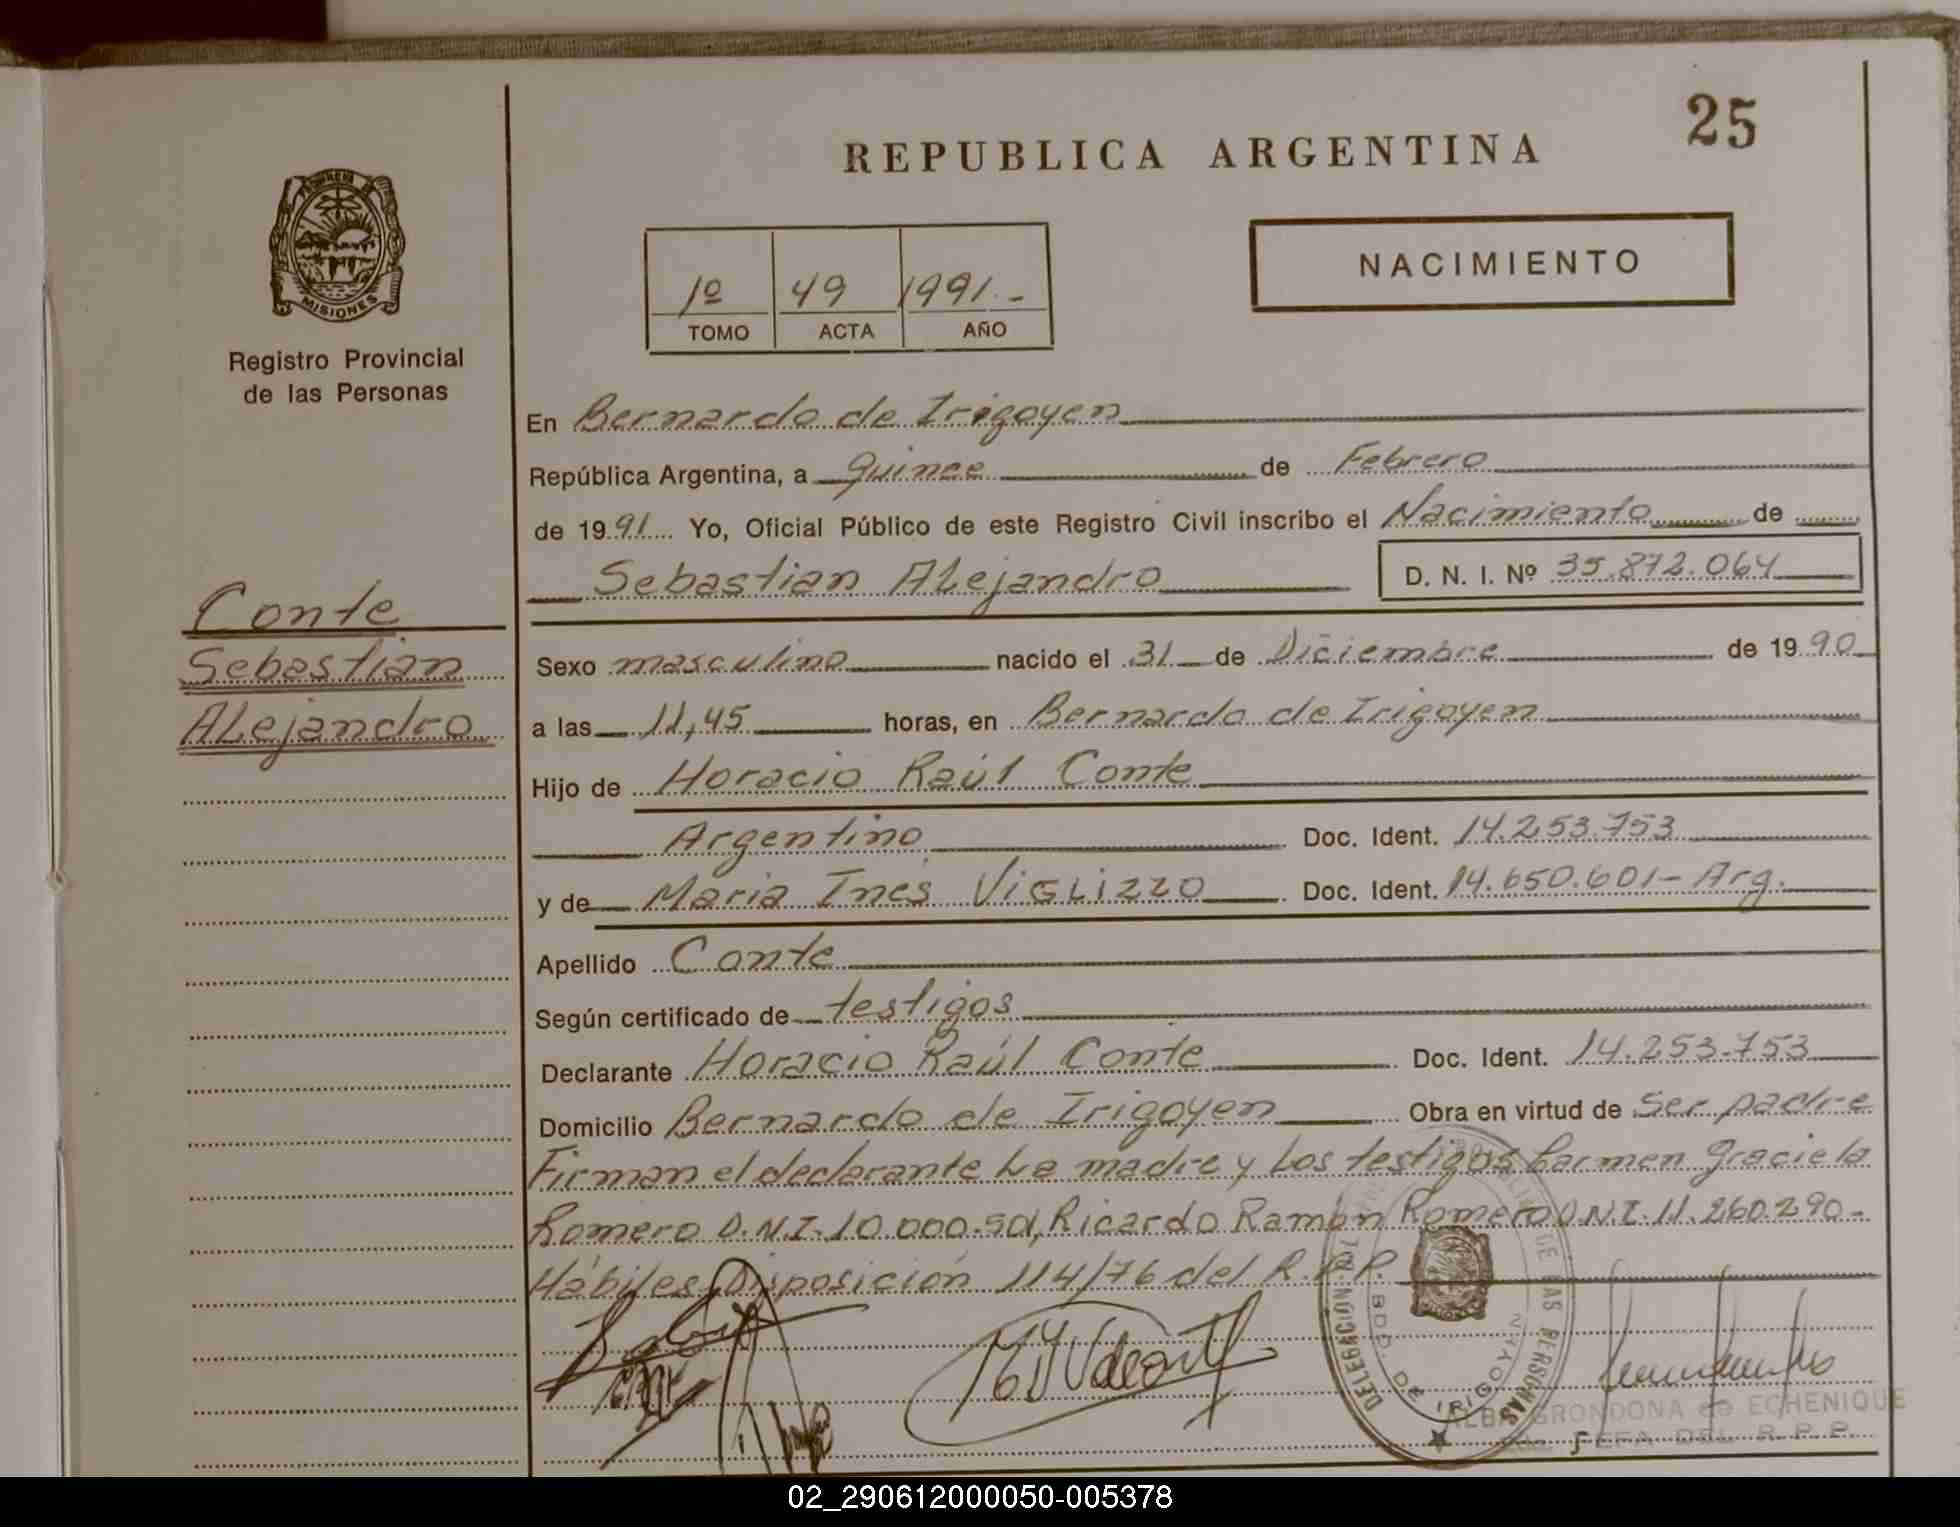 25
REPUBLICA ARGENTINA
PROVINCIA DE
MISIONES
Registro Provincial
de las Personas
NACIMIENTO
1º 49 1991.-
TOMO ACTA AÑO
En Bernardo de Irigoyen
República Argentina, a quince de Febrero
de 1991 Yo, Oficial Público de este Registro Civil inscribo el Nacimiento de
Sebastian Alejandro D. N. I. Nº 35.872.064
Conte
Sebastian
Alejandro
Sexo masculino nacido el 31 de Diciembre de 1990
a las 11,45 horas, en Bernardo de Irigoyen
Hijo de Horacio Raúl Conte
Argentino Doc. Ident. 14.253.753
y de Maria Ines VIGLIZZO Doc. Ident. 14.650.601- Arg.
Apellido Conte
Según certificado de testigos
Declarante Horacio Raúl Conte Doc. Ident. 14.253.753
Domicilio Bernardo de Irigoyen Obra en virtud de Ser padre
Firman el declarante La madre y Los testigos Carmen Graciela
Romero D.N.I. Ricardo Ramón Romero D.N.I. 11.260.290-
Hábiles Disposición 114/76 del R.P.P.
DELEGACIÓN DE LAS PERSONAS
BDO. DE IRIGOYEN
ALBA GRONDONA de ECHENIQUE
JEFA DEL R.P.P.
02_290612000050-005378